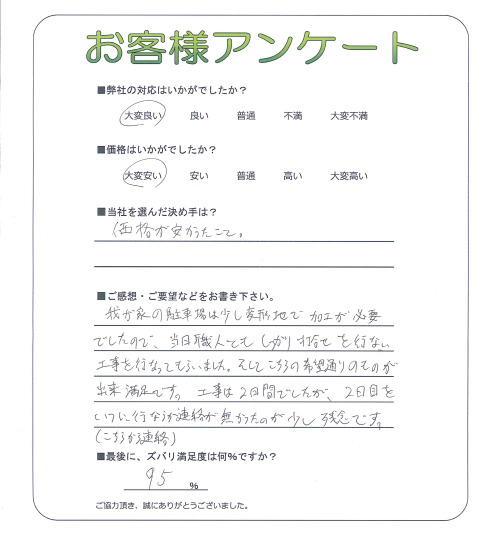 お客様アンケート
■弊社の対応はいかがでしたか？
大変良い 良い 普通 不満 大変不満
■価格はいかがでしたか？
大変安い 安い 普通 高い 大変高い
■当社を選んだ決め手は？
価格が安かったこと。
■ご感想・ご要望などをお書き下さい。
我が家の駐車場は少し変形地で 加工が必要
でしたので、当日職人さんとも しっかり 打合せ を行ない
工事を行なってもらいました。そしてこちらの希望通りのものが
出来 満足です。 工事は2日間でしたが、2日目を
いつに行なうか連絡が無かったのが少し残念です。
(こちらから連絡)
■最後に、ズバリ満足度は何％ですか？
95 ％
ご協力頂き、誠にありがとうございました。